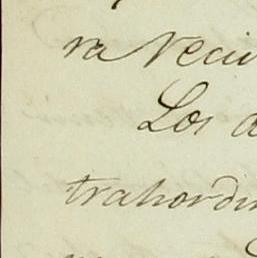 ra Veci
Los a
trahordi